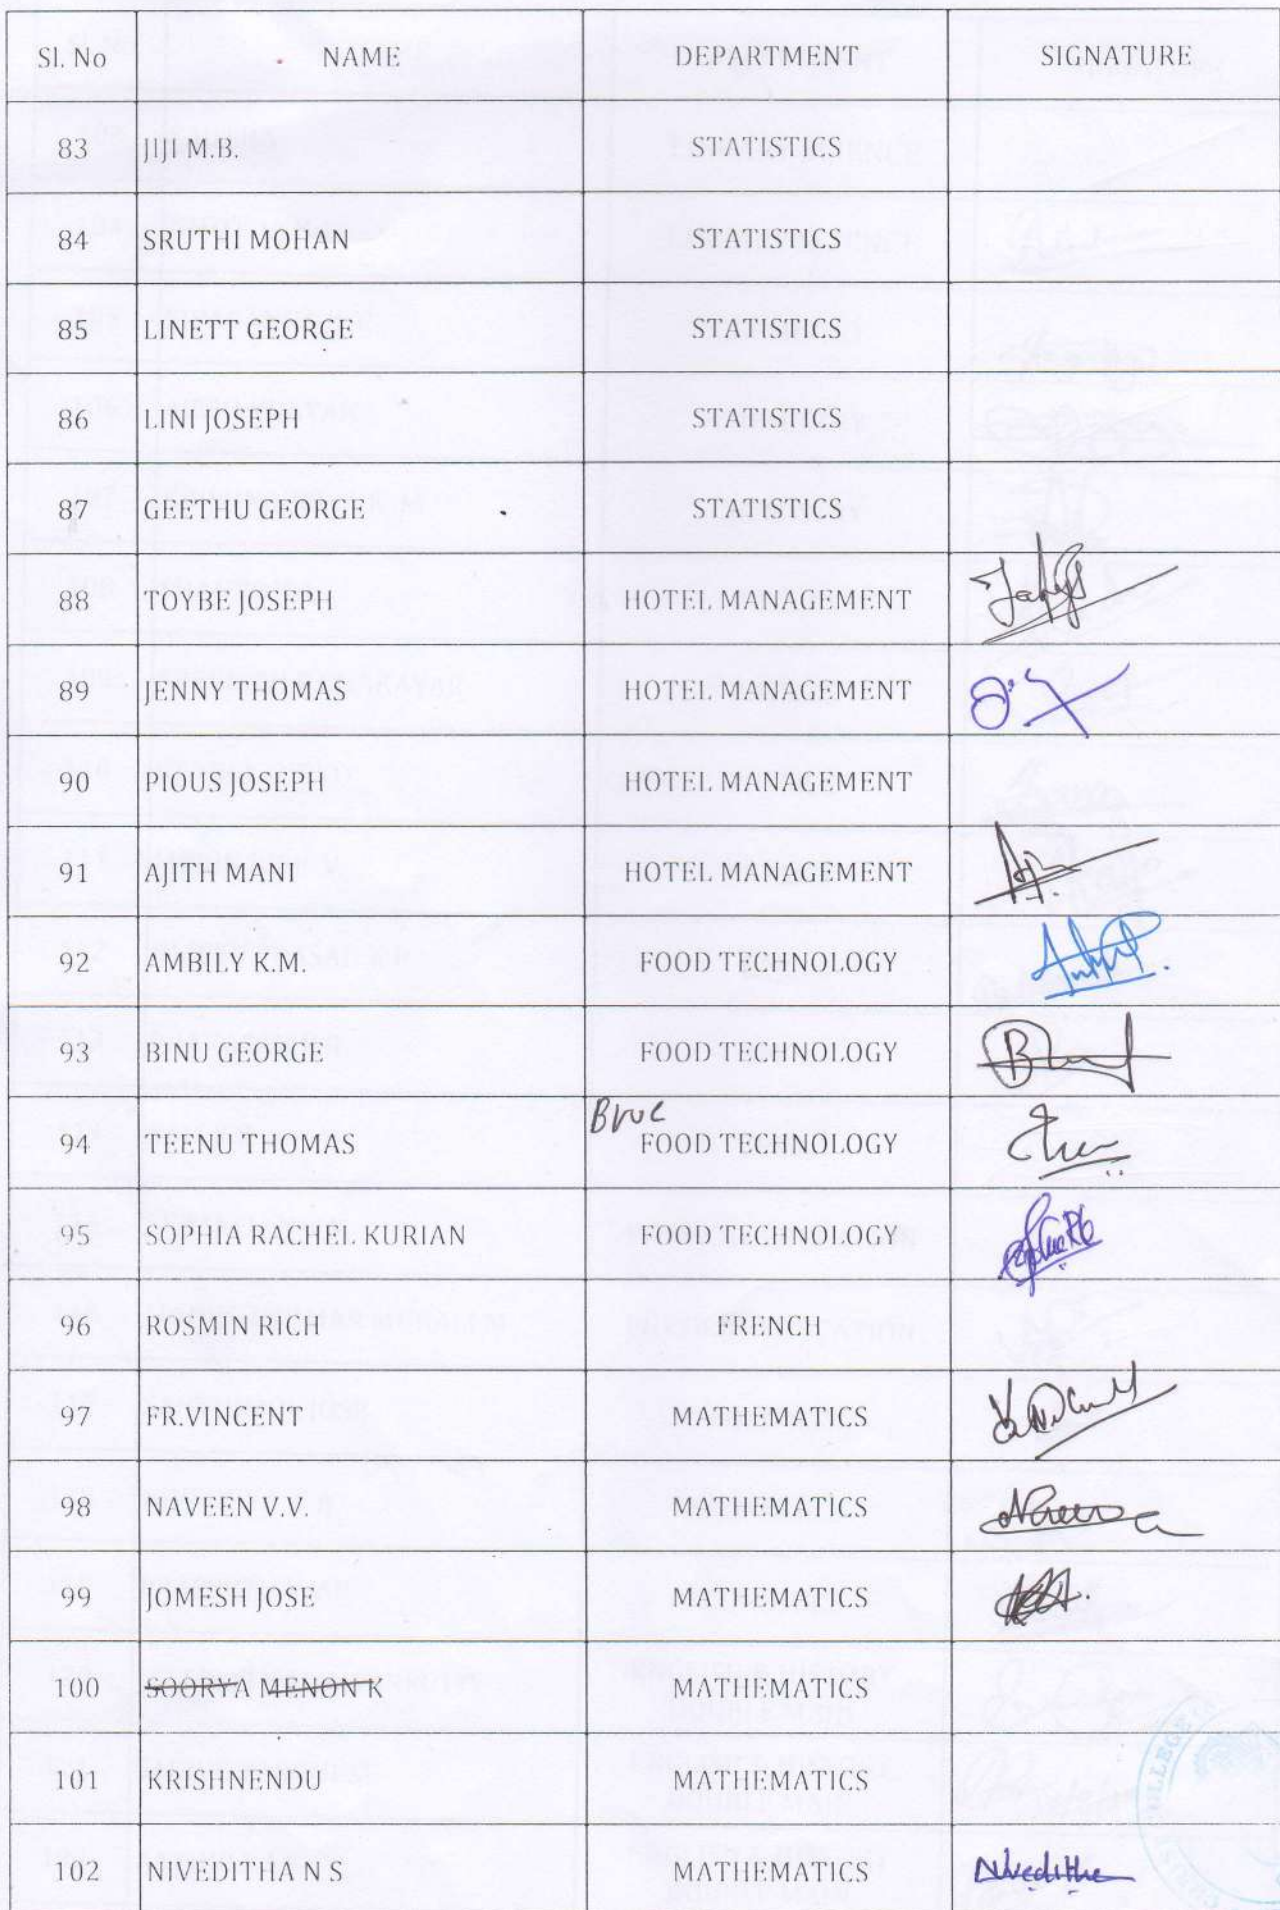 Sl. No NAME DEPARTMENT SIGNATURE
83 JIJI M.B. STATISTICS
84 SRUTHI MOHAN STATISTICS
85 LINETT GEORGE STATISTICS
86 LINI JOSEPH STATISTICS
87 GEETHU GEORGE STATISTICS
88 TOYBE JOSEPH HOTEL MANAGEMENT
89 JENNY THOMAS HOTEL MANAGEMENT
90 PIOUS JOSEPH HOTEL MANAGEMENT
91 AJITH MANI HOTEL MANAGEMENT
92 AMBILY K.M. FOOD TECHNOLOGY
93 BINU GEORGE FOOD TECHNOLOGY
94 TEENU THOMAS FOOD TECHNOLOGY
95 SOPHIA RACHEL KURIAN FOOD TECHNOLOGY
96 ROSMIN RICH FRENCH
97 FR.VINCENT MATHEMATICS
98 NAVEEN V.V. MATHEMATICS
99 JOMESH JOSE MATHEMATICS
100 SOORYA MENON K MATHEMATICS
101 KRISHNENDU MATHEMATICS
102 NIVEDITHA N S MATHEMATICS Niveditha